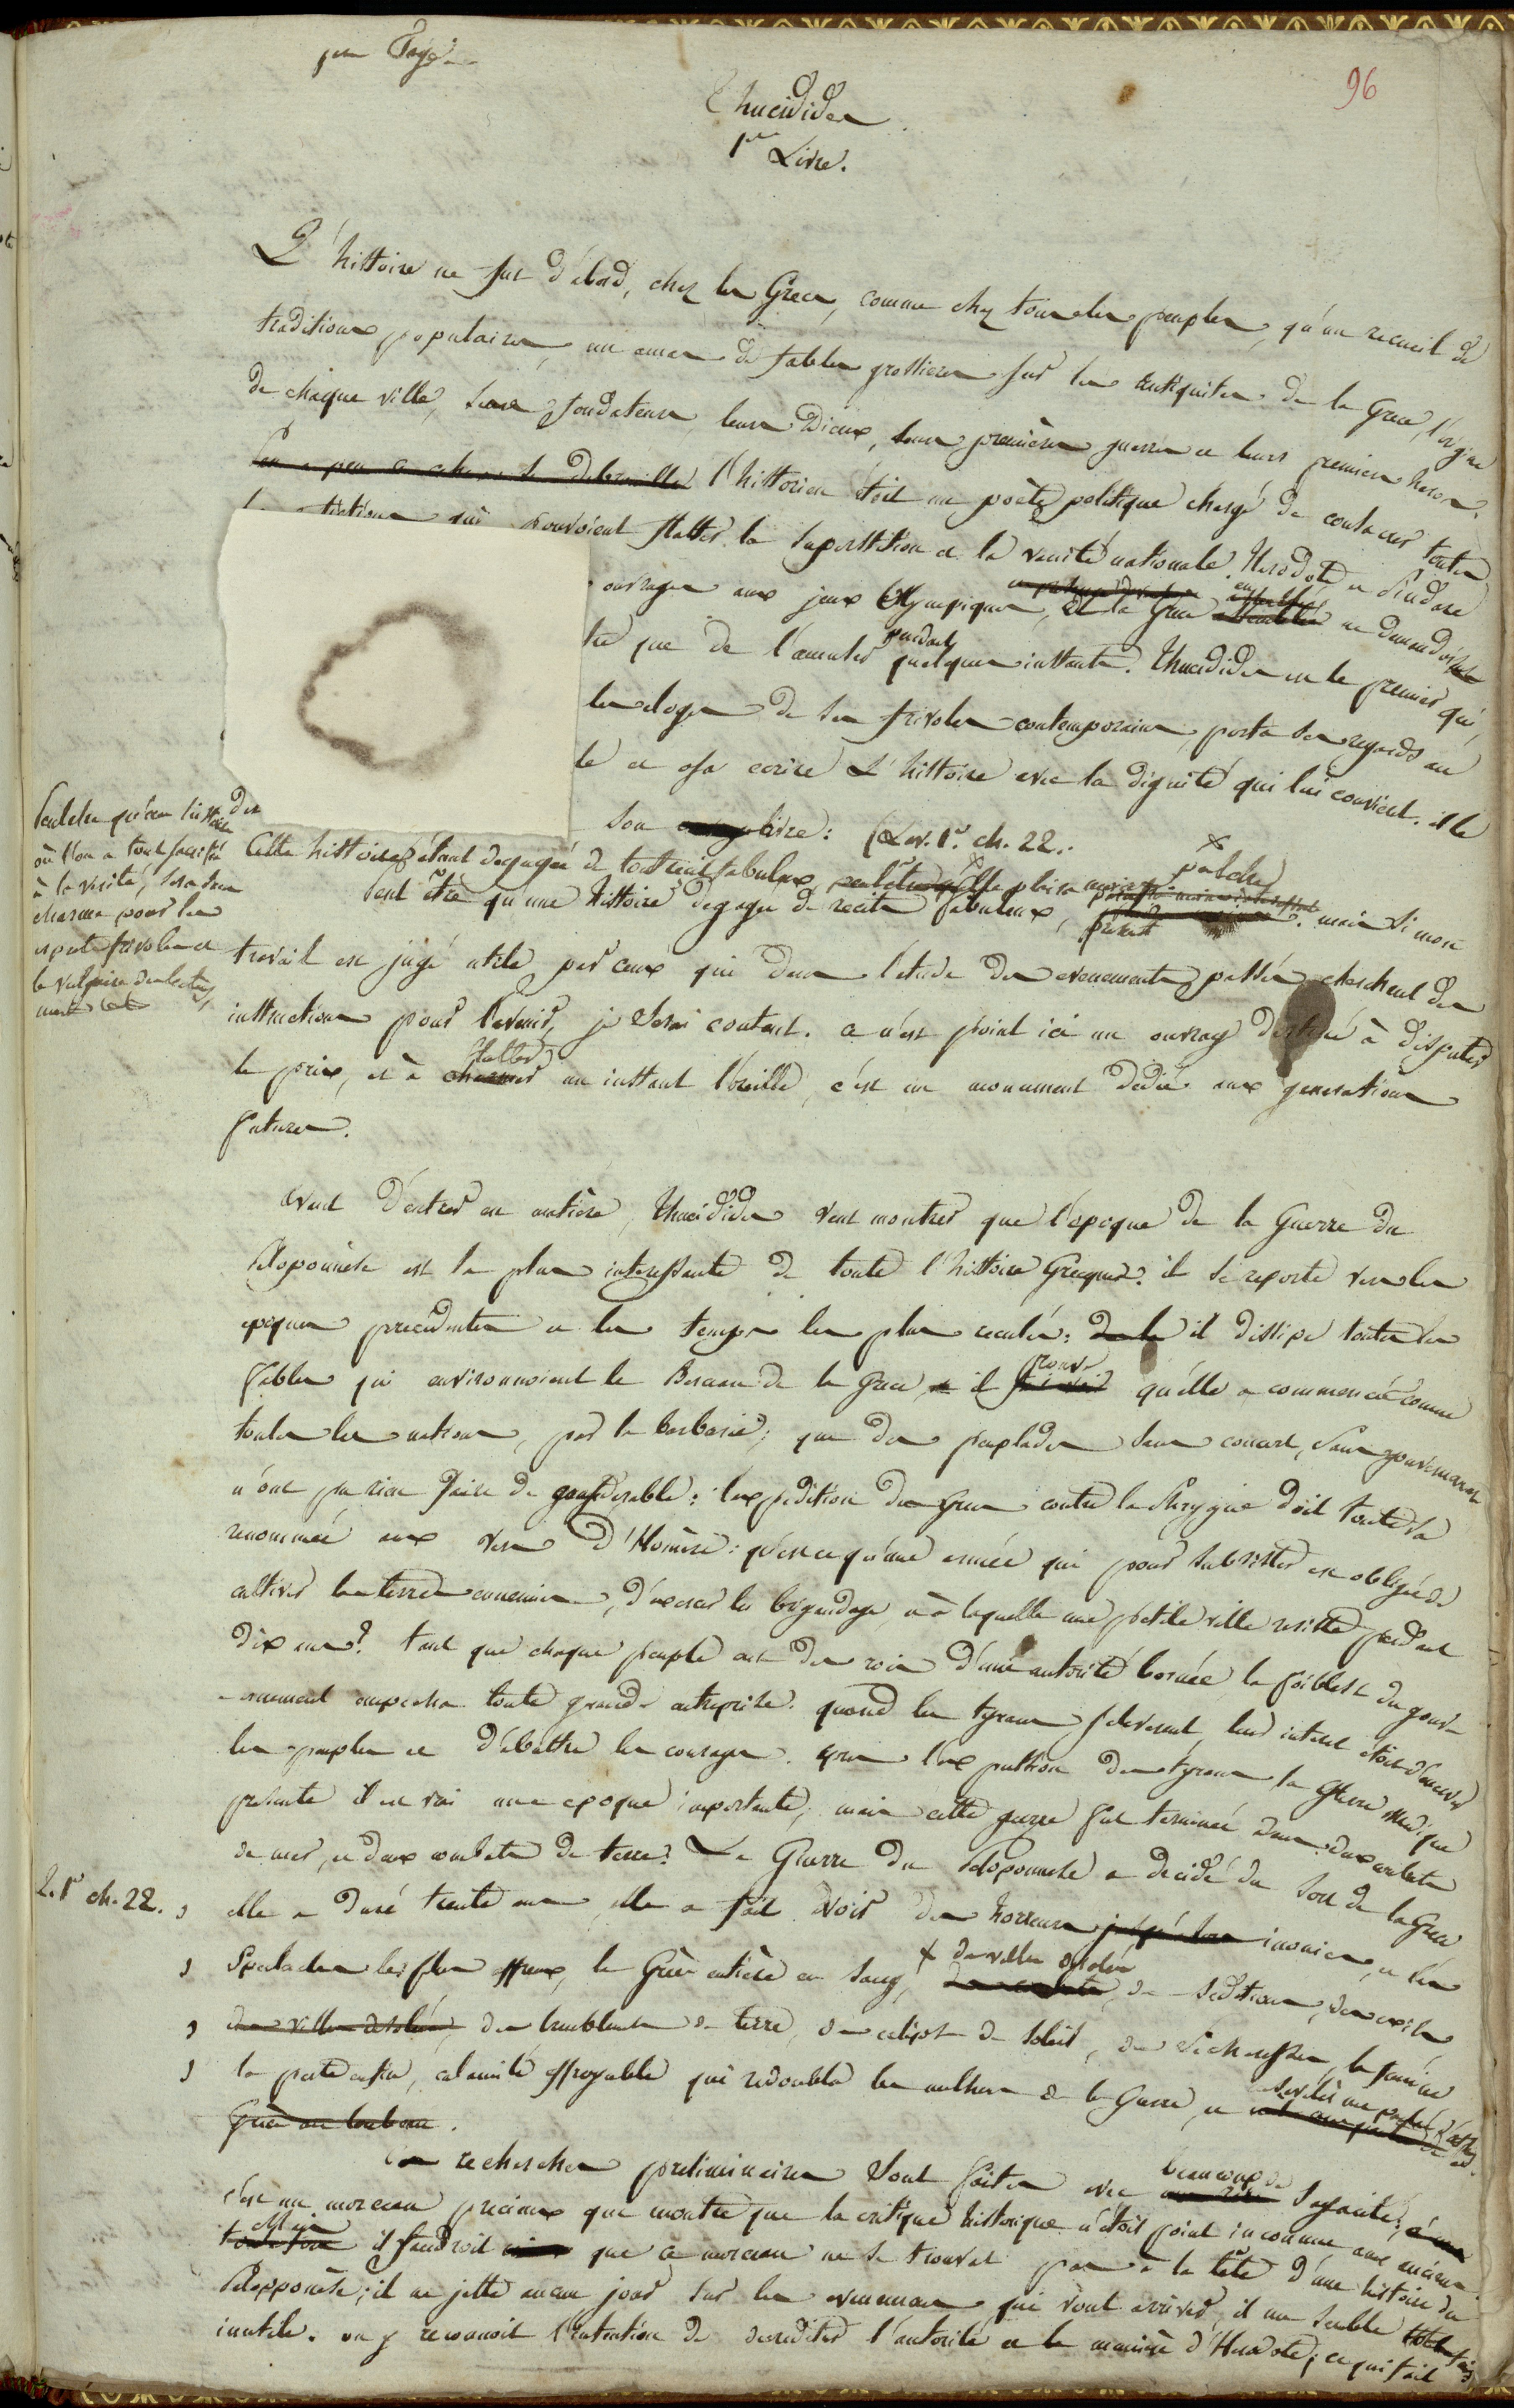 96
Thucidides
1er Livre.
L'histoire ne fut d'abord, chez les Grecs, comme chez tous les peuples, qu'un recueil de
traditions populaires, un amas de fables grossieres sur les antiquites de la Grece, l'origine
de chaque ville, ses fondateurs, leurs Dieux, leurs premières guerres et leurs premiers heros.
l'historien étoit un poëte politique chargé de consacrer toutes
les fictions qui pouvoient flatter la superstition et la vanité nationale. Herodote et Pindare
ouvrages aux jeux Olympiques, et la Grece assemblée ne demandoit
que de l'amuser pendant quelques instants. Thucidides est le premier qui,
les eloges de ses frivoles contemporains, porta ses regards au
et osa ecrire L'histoire avec la dignité qui lui convient. il le
son livre: (Liv. 1er. ch. 22.
Cette histoire étant degagée de tout recit fabuleux, peut être qu'elle plaira moins
peut être qu'une histoire degagée de recits fabuleux, mais si mon
travail est jugé utile par ceux qui dans l'etude des evenements passés cherchent des
instructions pour l'avenir, je serai content. ce n'est point ici un ouvrage destiné à disputer
le prix, et à flatter un instant l'oreille, c'est un monument dedié aux generations
futures.
Peut etre qu'une histoire
où l'on a tout sacrifié
à la verité, sera sans
charme pour les
esprits frivoles et
le vulgaire des lecteurs,
Avant d'entrer en matière, Thucidides veut montrer que l'epoque de la Guerre du
Peloponnèse est la plus interessante de toute l'histoire Grecque. il se reporte vers les
epoques precedentes et les temps les plus reculés: il dissipe toutes les
fables qui environnoient le Berceau de la Grece, il prouve qu'elle a commencé comme
toutes les nations, par la barbarie; que des peuplades sans concert, sans gouvernement
n'ont pu rien faire de considerable: l'expedition des Grecs contre la Phrygie doit toute sa
renommée aux vers d'Homère: qu'est ce qu'une armée qui pour subsister est obligée de
cultiver les terres ennemies, d'exercer les brigandages, et à laquelle une petite ville resiste pendant
dix ans? tant que chaque peuple eut des rois d'une autorité bornée la foiblesse du gouver-
-nement empecha toute grande entreprise. quand les tyrans s'eleverent, leur interet étoit d'enerver
les peuples et d'abattre les courages. après l'expulsion des tyrans la Guerre medique
presente il est vrai une epoque importante; mais cette guerre fut terminée dans deux combats
de mer, et deux combats de terre. La Guerre du Peloponnese a decidé du sort de la Grece
L. 1er ch. 22. elle a duré trente ans, elle a fait voir des horreurs inouies, et les
spectacles les plus affreux, la Grèce entière en sang, des villes desolées, des seditions, des exils,
des villes desolées, des tremblements de terre, des eclipses de soleil, des secheresses, la famine
la peste enfin, calamité effroyable qui redoubla les malheurs de la Guerre, et
Grèce au tombeau.
Ces recherches preliminaires sont faites avec beaucoup de sagacité;
c'est un morceau precieux qui montre que la critique historique n'étoit point inconnue aux anciens.
Mais il faudroit que ce morceau ne se trouvat pas à la tête d'une histoire du
Peloponèse; il ne jette aucun jour sur les evenemens qui vont arriver, il me semble
inutile. on y reconnoit l'intention de decrediter l'autorité et la manière d'Herodote; ce qui fait